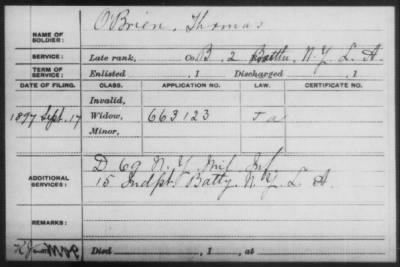 NAME OF SOLDIER: OBrien, Thomas
SERVICE: Late rank, Co. B, 2 Battn, N.Y. L. A.
TERM OF SERVICE: Enlisted , 1 Discharged , 1
DATE OF FILING. CLASS. APPLICATION NO. LAW. CERTIFICATE NO.
Invalid,
1897 Sept. 17 Widow, 663123
Minor,
D 69 N.Y. Mil Inf
ADDITIONAL SERVICES: 15 Indpt. Batty. N.Y. L. A.
REMARKS:
Died , 1 , at